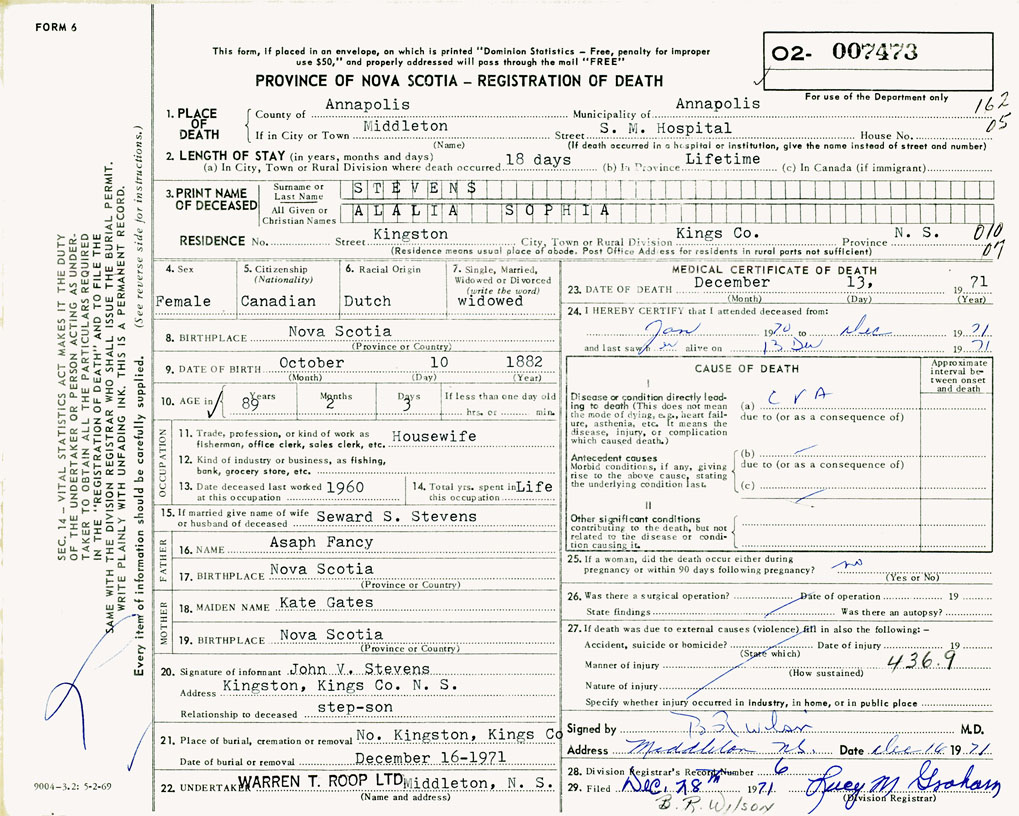 FORM 6
This form, if placed in an envelope, on which is printed "Dominion Statistics – Free, penalty for improper
use $50," and properly addressed will pass through the mail "FREE"
PROVINCE OF NOVA SCOTIA – REGISTRATION OF DEATH
02- 007473
For use of the Department only
162
05
1. PLACE OF DEATH
County of Annapolis Municipality of Annapolis
If in City or Town Middleton Street S. M. Hospital House No.
(Name) (If death occurred in a hospital or institution, give the name instead of street and number)
2. LENGTH OF STAY (in years, months and days)
(a) In City, Town or Rural Division where death occurred 18 days (b) In Province Lifetime (c) In Canada (if immigrant)
3. PRINT NAME OF DECEASED
Surname or Last Name STEVENS
All Given or Christian Names ALALIA SOPHIA
RESIDENCE No. Street Kingston City, Town or Rural Division Kings Co. Province N. S.
010
07
(Residence means usual place of abode. Post Office Address for residents in rural parts not sufficient)
4. Sex Female
5. Citizenship (Nationality) Canadian
6. Racial Origin Dutch
7. Single, Married, Widowed or Divorced (write the word) widowed
8. BIRTHPLACE Nova Scotia
(Province or Country)
9. DATE OF BIRTH October 10 1882
(Month) (Day) (Year)
10. AGE in Years 89 Months 2 Days 3 If less than one day old
hrs. or min.
OCCUPATION
11. Trade, profession, or kind of work as
fisherman, office clerk, sales clerk, etc. Housewife
12. Kind of industry or business, as fishing,
bank, grocery store, etc.
13. Date deceased last worked at this occupation 1960
14. Total yrs. spent in this occupation Life
15. If married give name of wife
or husband of deceased Seward S. Stevens
FATHER
16. NAME Asaph Fancy
17. BIRTHPLACE Nova Scotia
(Province or Country)
MOTHER
18. MAIDEN NAME Kate Gates
19. BIRTHPLACE Nova Scotia
(Province or Country)
20. Signature of informant John V. Stevens
Address Kingston, Kings Co. N. S.
Relationship to deceased step-son
21. Place of burial, cremation or removal No. Kingston, Kings Co
Date of burial or removal December 16-1971
22. UNDERTAKER WARREN T. ROOP LTD Middleton, N. S.
(Name and address)
MEDICAL CERTIFICATE OF DEATH
23. DATE OF DEATH December 13, 1971
(Month) (Day) (Year)
24. I HEREBY CERTIFY that I attended deceased from:
Jan 1970 to Dec 1971
and last saw er alive on 13 Dec 1971
CAUSE OF DEATH
Approximate interval between onset and death
I
Disease or condition directly leading to death (This does not mean
the mode of dying, e.g., heart failure, asthenia, etc. It means the
disease, injury, or complication
which caused death.)
(a) CVA
due to (or as a consequence of)
Antecedent causes
Morbid conditions, if any, giving
rise to the above cause, stating
the underlying condition last.
(b)
due to (or as a consequence of)
(c)
II
Other significant conditions
contributing to the death, but not
related to the disease or condition causing it.
25. If a woman, did the death occur either during
pregnancy or within 90 days following pregnancy? no
(Yes or No)
26. Was there a surgical operation? Date of operation 19
State findings Was there an autopsy?
27. If death was due to external causes (violence) fill in also the following: –
Accident, suicide or homicide? Date of injury 19
(State which)
436.9
Manner of injury
(How sustained)
Nature of injury
Specify whether injury occurred in industry, in home, or in public place
Signed by B R Wilson M.D.
Address Middleton N.S. Date Dec 16 1971
28. Division Registrar's Record Number 6
29. Filed Dec. 28th 1971 Lucy M Graham
(Division Registrar)
B. R. WILSON
SEC. 14 – VITAL STATISTICS ACT MAKES IT THE DUTY
OF THE UNDERTAKER OR PERSON ACTING AS UNDERTAKER TO OBTAIN ALL THE PARTICULARS REQUIRED
IN THE "REGISTRATION OF DEATH" AND TO FILE THE
SAME WITH THE DIVISION REGISTRAR WHO SHALL ISSUE THE BURIAL PERMIT.
WRITE PLAINLY WITH UNFADING INK. THIS IS A PERMANENT RECORD.
Every item of information should be carefully supplied. (See reverse side for instructions.)
9004-3.2: 5-2-69